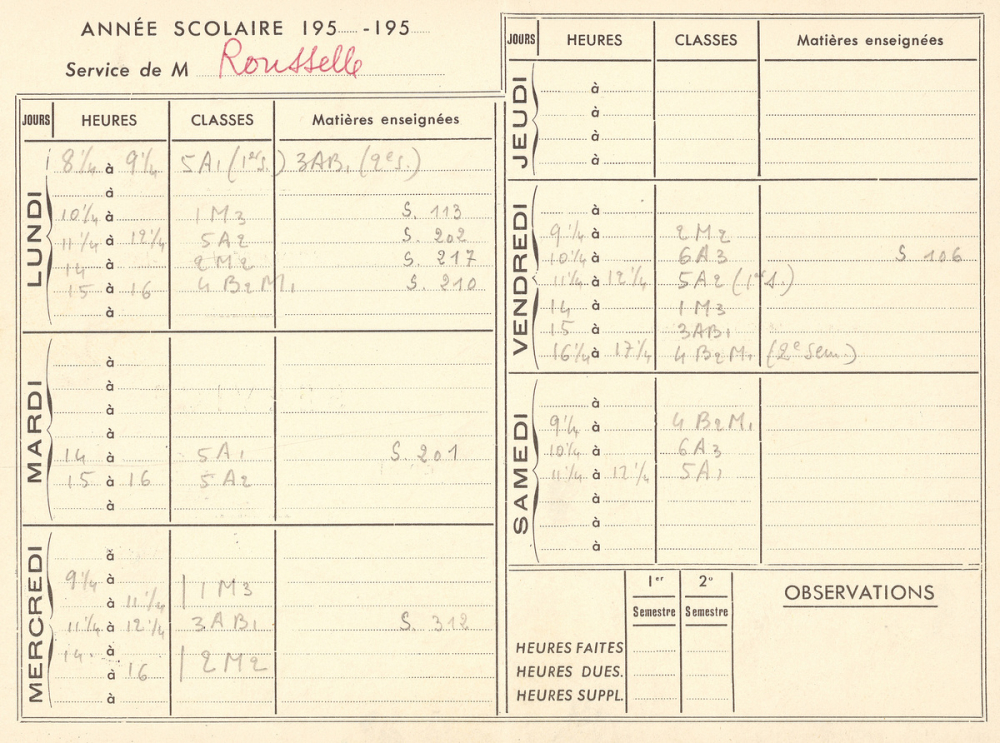 ANNÉE SCOLAIRE 195 -195
Service de M Rousselle
JOURS HEURES CLASSES Matières enseignées
LUNDI
8 1/4 à 9 1/4 5A1 (1er s.) 3AB1 (2e s.)
à
10 1/4 à 1M3 S. 113
11 1/4 à 12 1/4 5A2 S. 202
14 à 2M2 S. 217
15 à 16 4B2M1 S. 210
à
MARDI
à
à
à
à
14 à 5A1 S. 201
15 à 16 5A2
à
MERCREDI
à
9 1/4 à 1M3
à 11 1/4
11 1/4 à 12 1/4 3AB1 S. 312
14 à 2M2
à 16
à
JOURS HEURES CLASSES Matières enseignées
JEUDI
à
à
à
à
VENDREDI
à
9 1/4 à 2M2
10 1/4 à 6A3 S 106
11 1/4 à 12 1/4 5A2 (1er s.)
14 à 1M3
15 à 3AB1
16 1/4 à 17 1/4 4B2M1 (2e sem.)
SAMEDI
à
9 1/4 à 4B2M1
10 1/4 à 6A3
11 1/4 à 12 1/4 5A1
à
à
à
1er Semestre 2e Semestre
HEURES FAITES
HEURES DUES.
HEURES SUPPL.
OBSERVATIONS